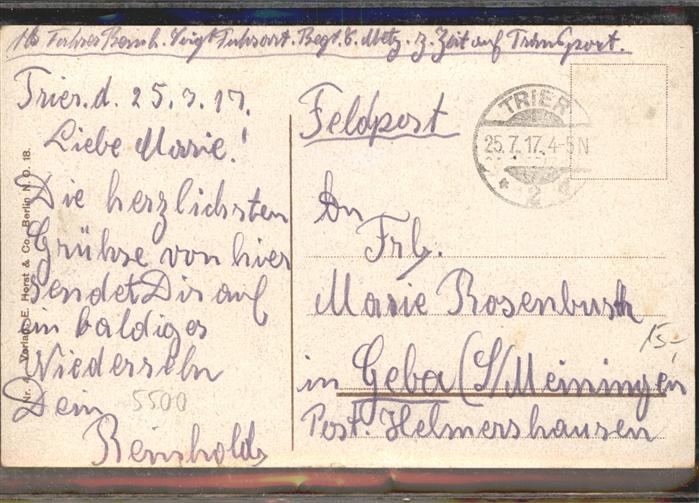 Trier. d. 25.7.17.
Liebe Marie!
Die herzlichsten
Grühse von hier
sendet Dir auf
ein baldiges
Wiedersehn
Dein
Reinhold
5500
Nr. Verlag E. Horst & Co., Berlin N.O. 18.
Feldpost
TRIER
25.7.17.4-5N
* 2
An
Frl.
Marie Rosenbusch
in Geba (S/Meiningen
Post. Helmershausen
15-
Zeit auf Transport.